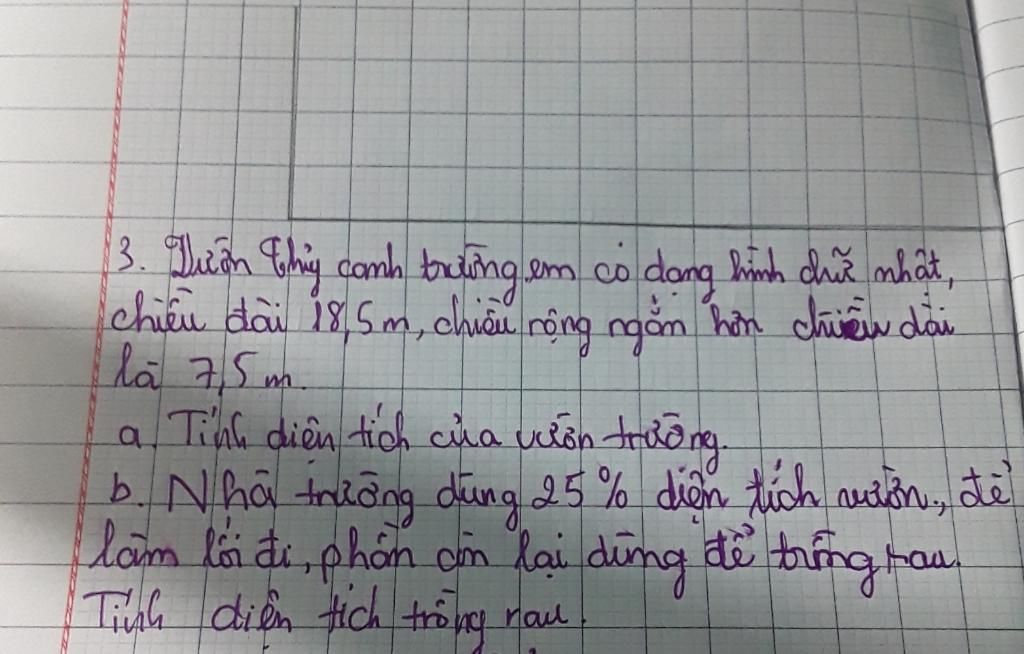 3. Vườn thủy canh trường em có dạng hình chữ nhật,
chiều dài 18,5m, chiều rộng ngắn hơn chiều dài
là 7,5m.
a. Tính diện tích của vườn trường.
b. Nhà trường dùng 25% diện tích vườn, để
làm lối đi, phần còn lại dùng để trồng rau.
Tính diện tích trồng rau.